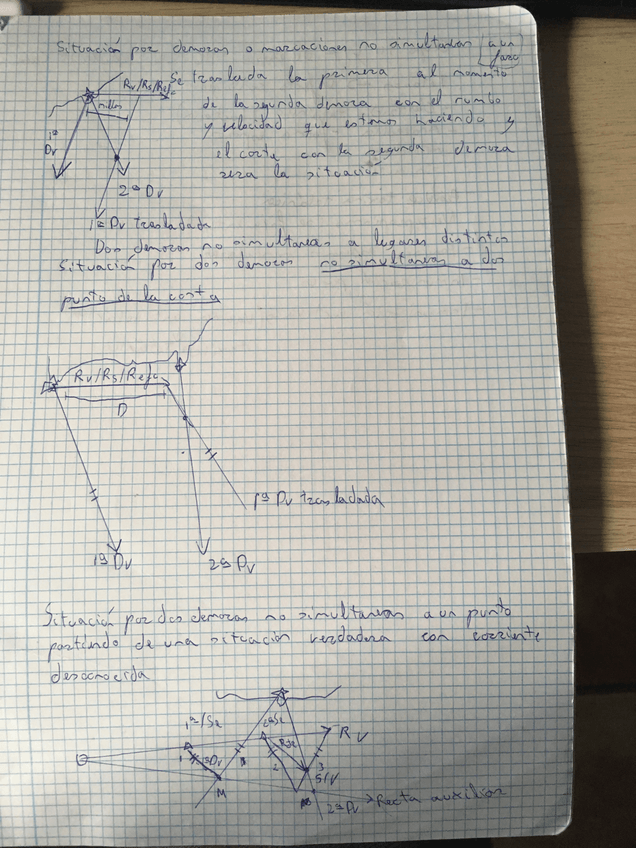 Situación por demoras o marcaciones no simultaneas (a un
faro)
Rv/Rs/Ref
Se traslada la primera al momento
millas
de la segunda demora con el rumbo
y velocidad que estemos haciendo y
1ª
Dv
el corte con la segunda demora
sera la situación
2ª Dv
1ª Dv trasladada
Dos demoras no simultaneas a lugares distintos
Situación por dos demoras no simultaneas a dos
punto de la costa
Rv/Rs/Refc
D
1ª Dv trasladada
1ª Dv
2ª Dv
Situación por dos demoras no simultaneas a un punto
partiendo de una situación verdadera con corriente
desconocida
1ª/Se
2ª Se
Rv
1
2
3
S/V
M
2ª Dv
Recta auxiliar